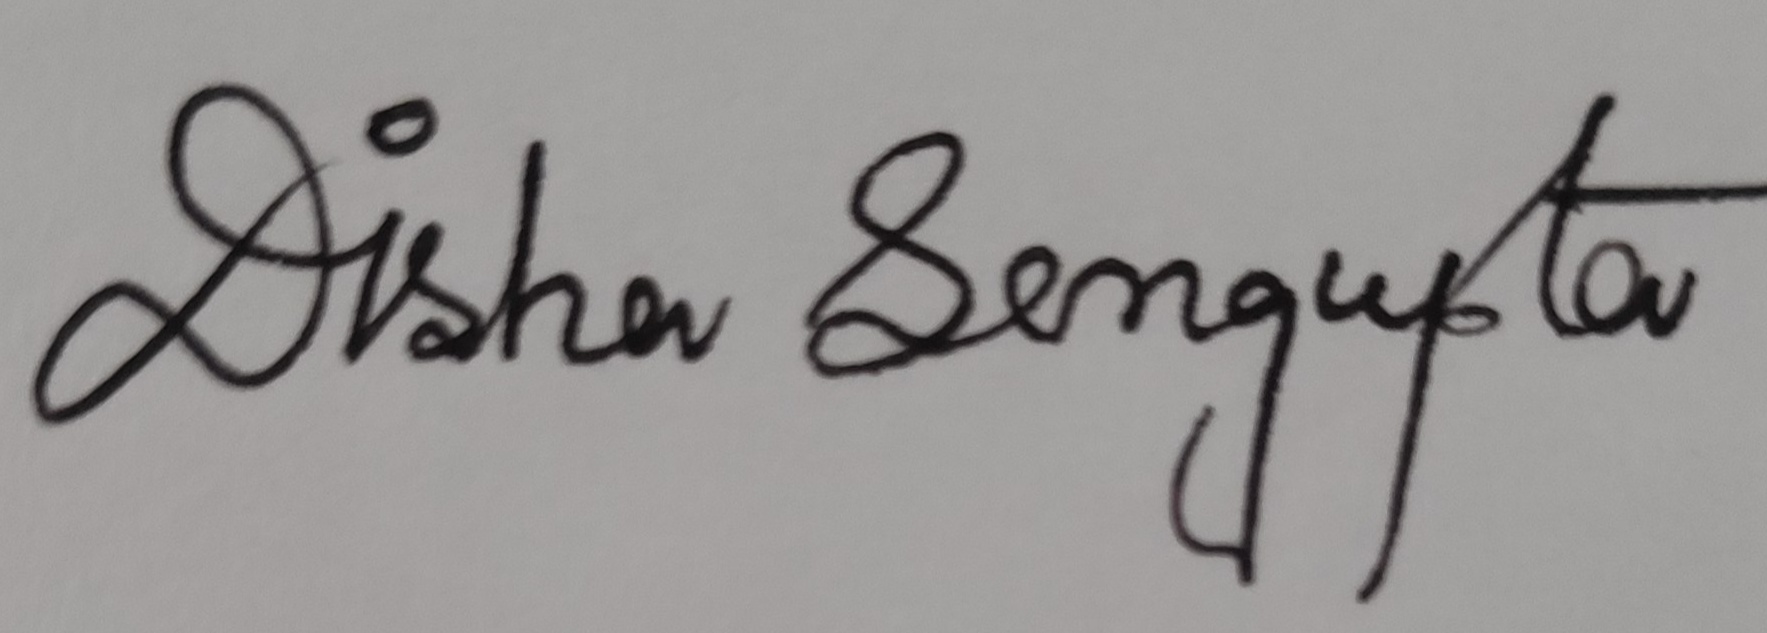 Disha Sengupta